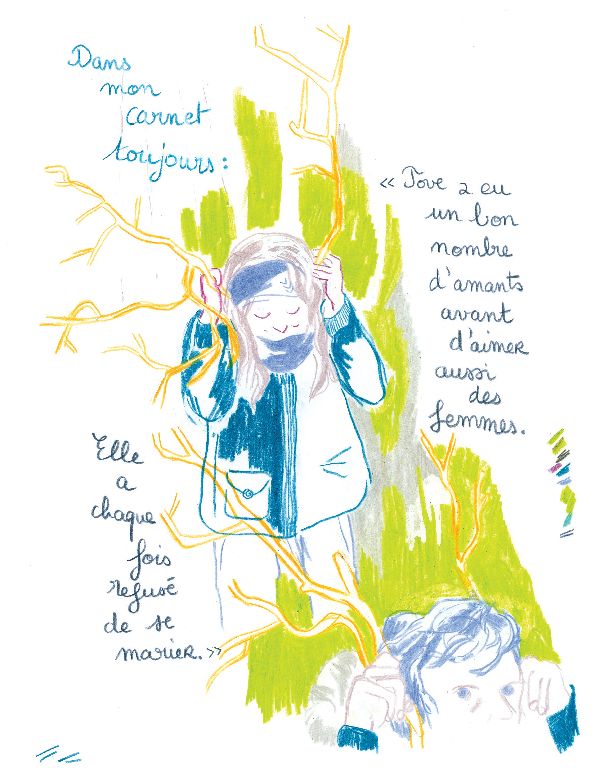 Dans
mon
carnet
toujours :
« Tove a eu
un bon
nombre
d'amants
avant
d'aimer
aussi
des
femmes.
Elle
a
chaque
fois
refusé
de se
marier. »